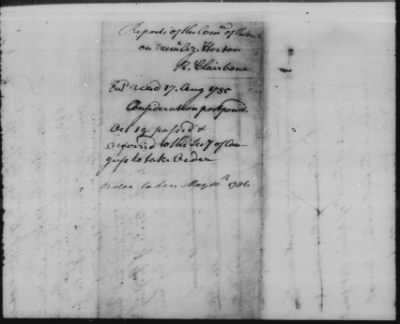 Reports of the Com.r of the
on
R. Claiborne
Ent.d read 17. Aug 1785
Consideration postponed.
Oct 19. passed &
referred to the Sec.y of Con
gress to take Order
Order taken May 10.th 1786